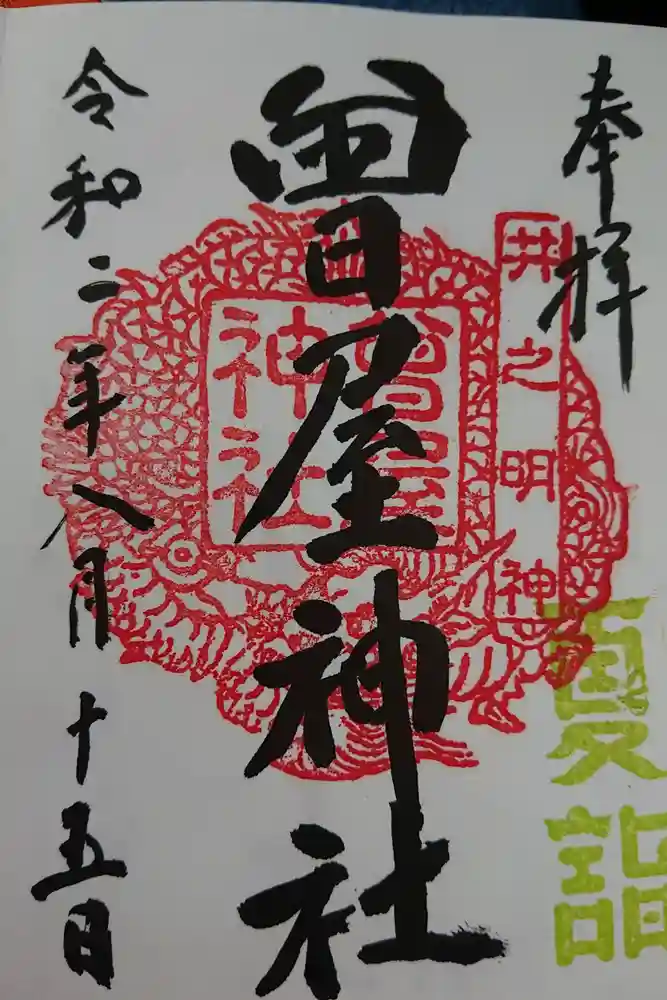 奉拝
井之明神
夏詣
曽屋神社
曽屋
神社
神社
令和二年八月十五日